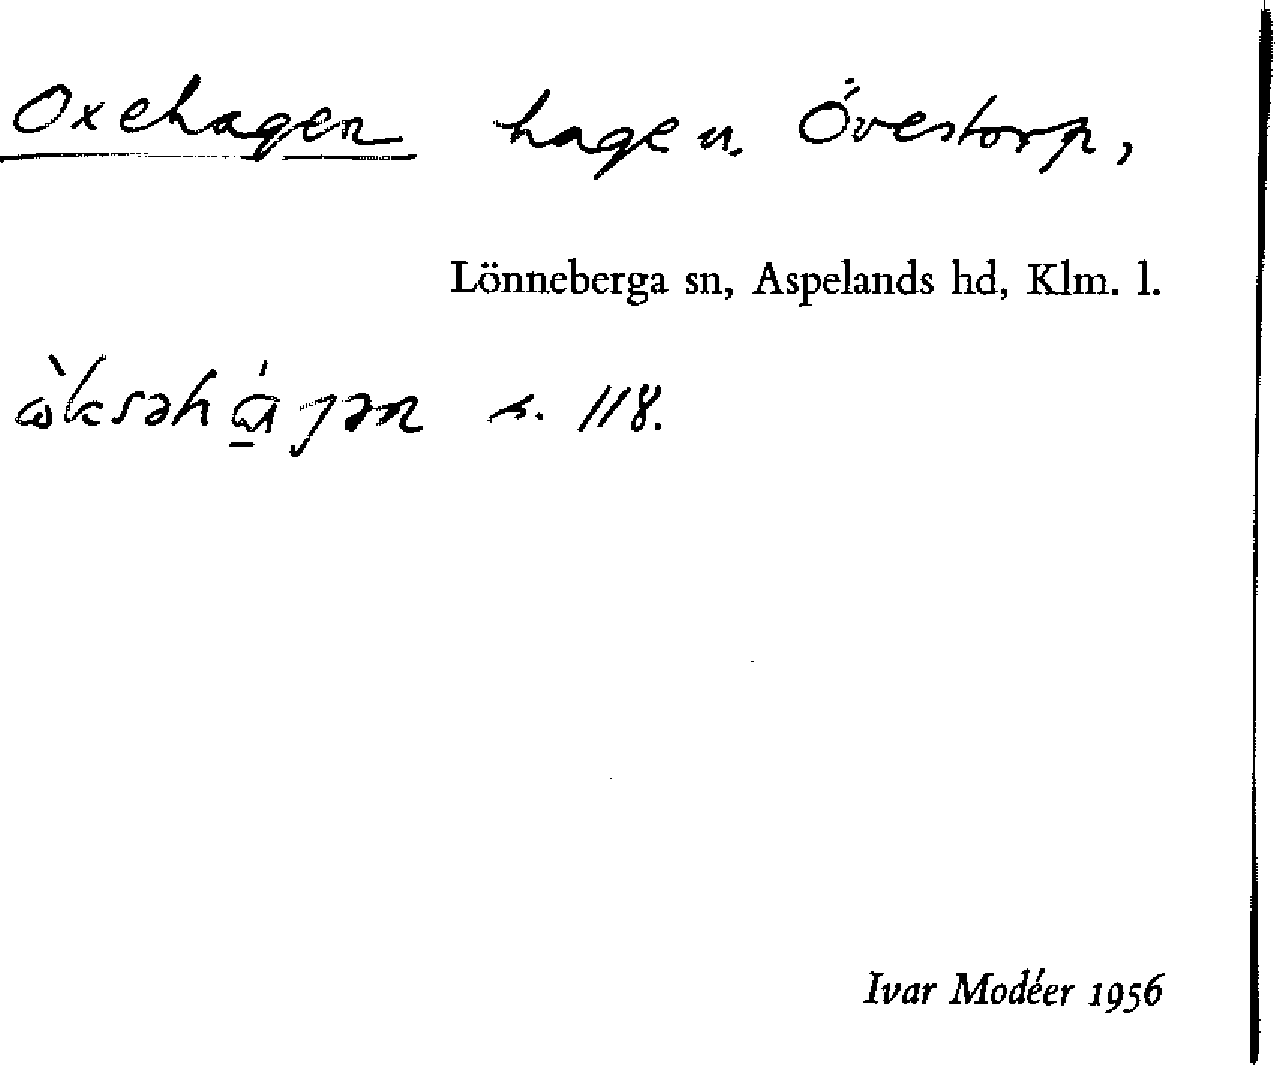 Oxehagen hage u. Övestorp,
Lönneberga sn, Aspelands hd, Klm. l.
s. 118.
Ivar Modéer 1956